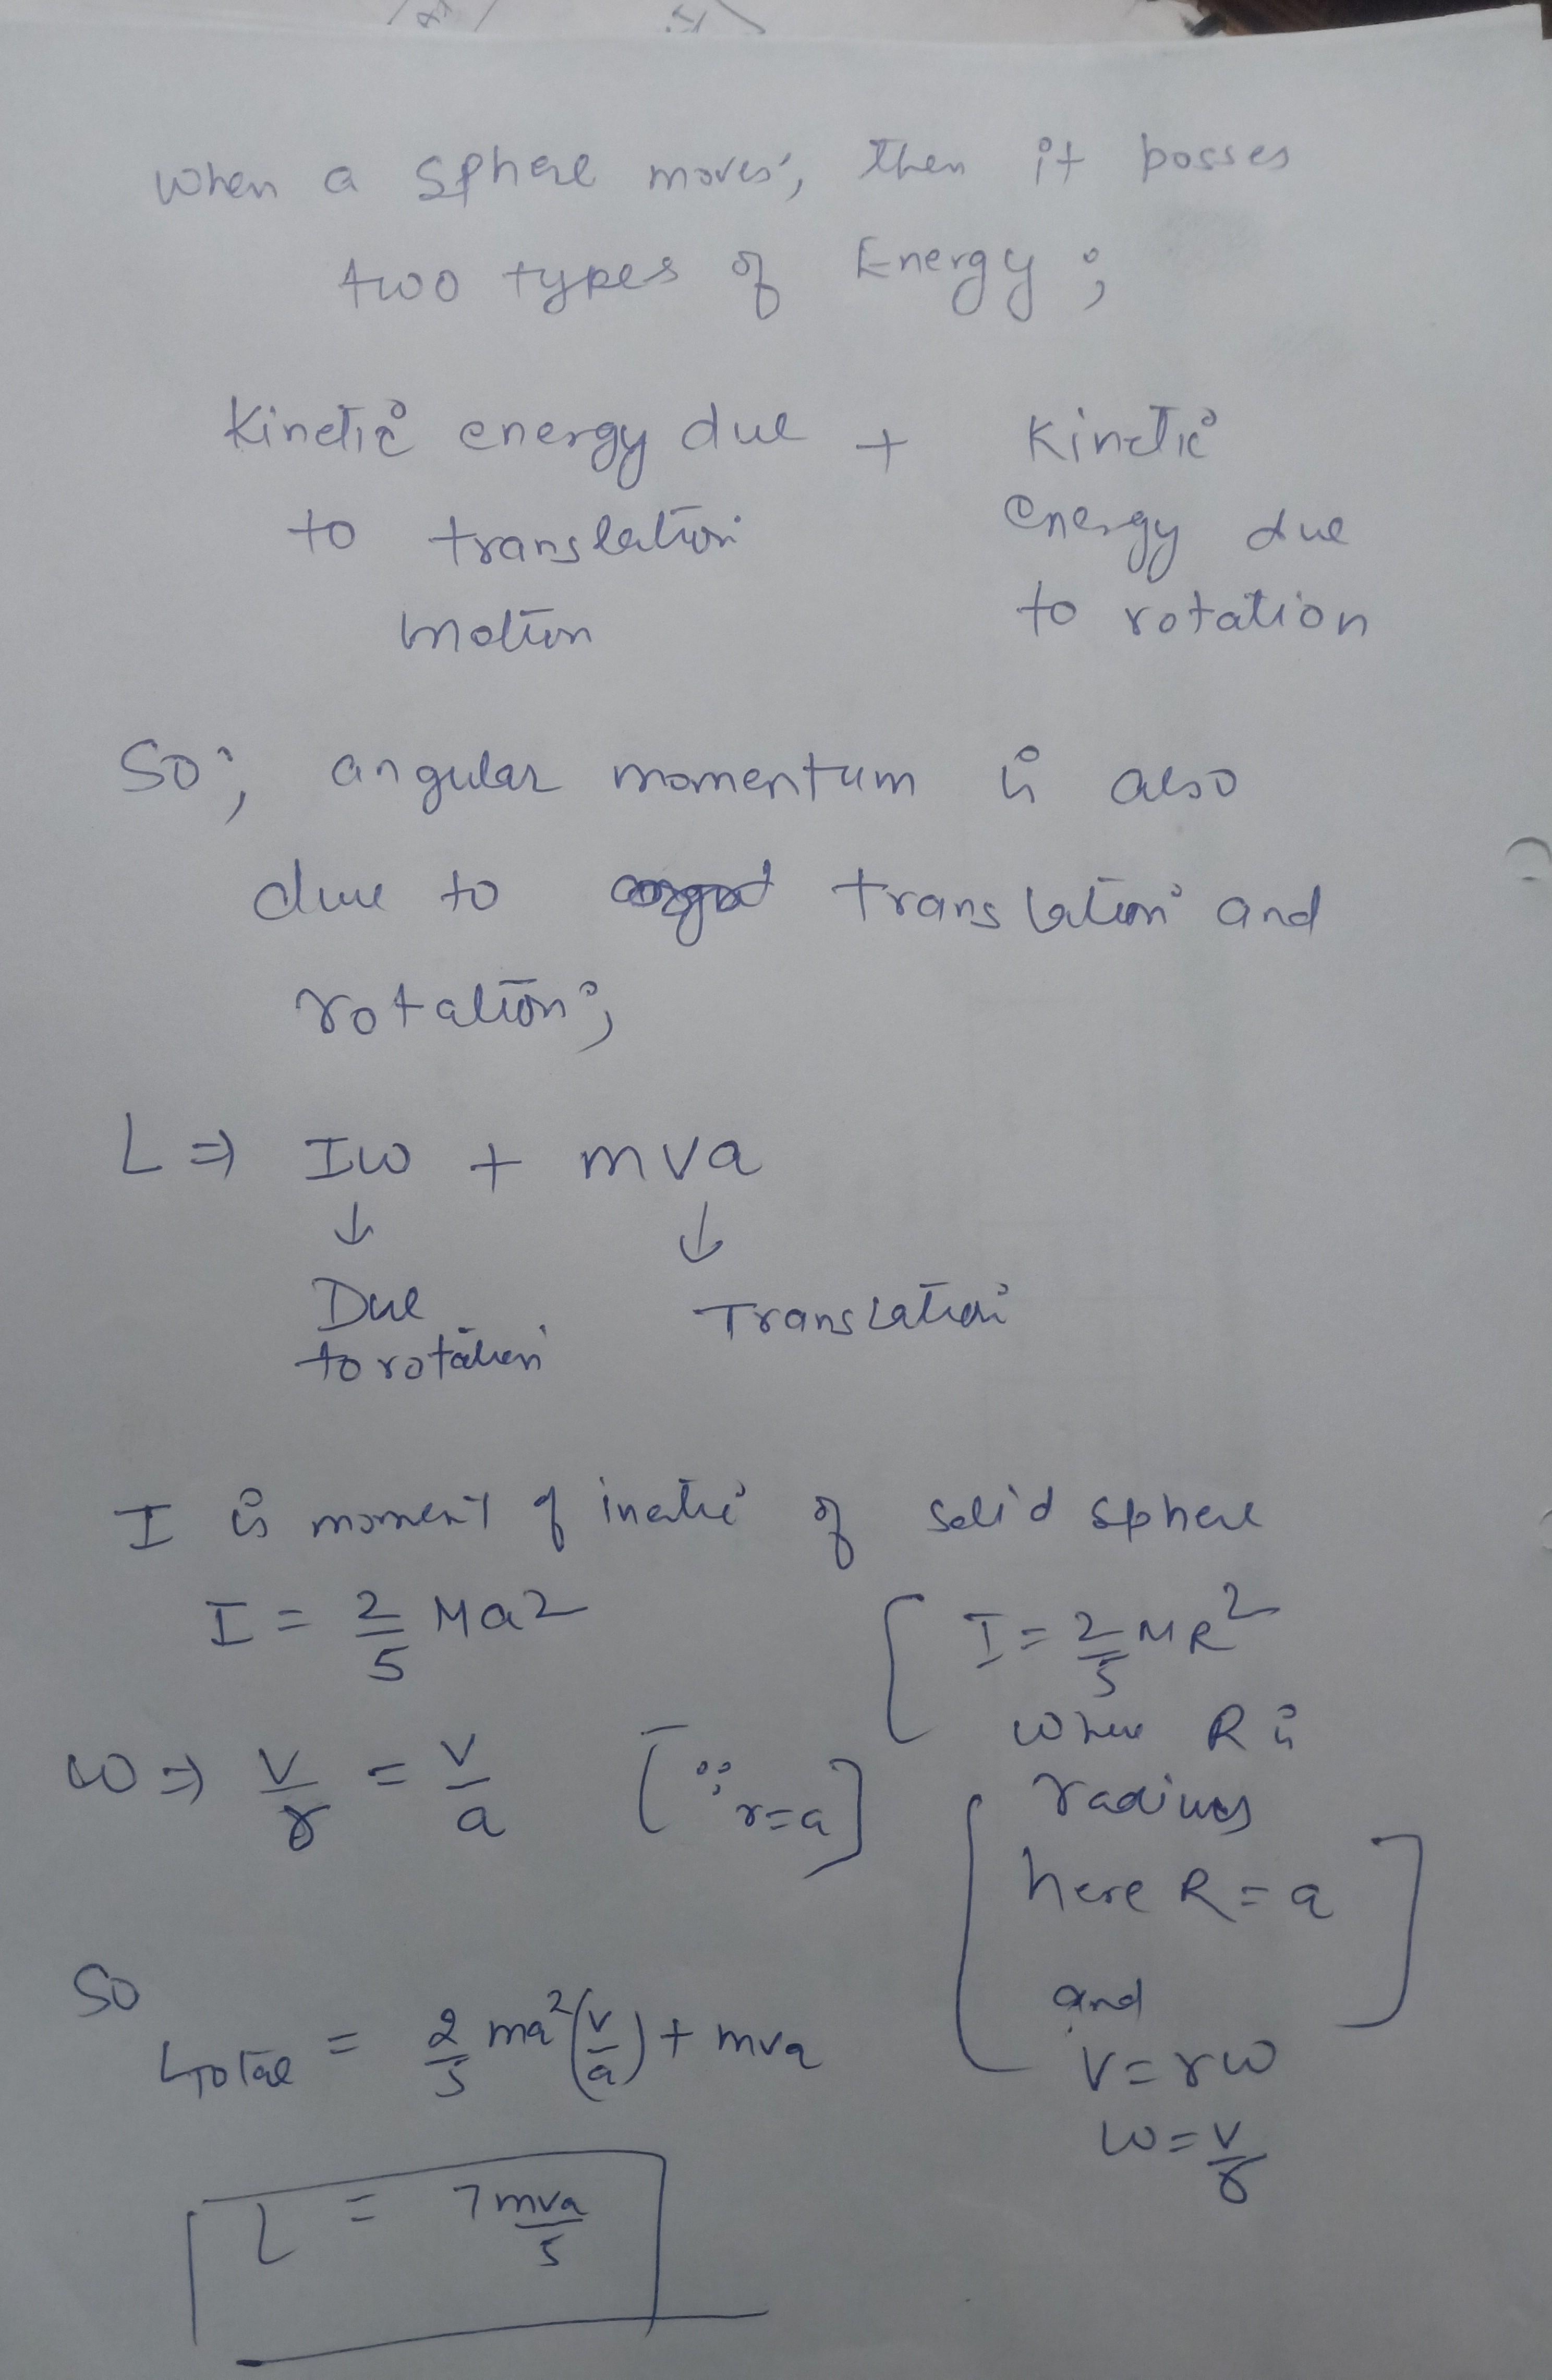 When a sphere moves, then it posses
two types of Energy;
Kinetic energy due + Kinetic
to translation energy due
motion to rotation
So, angular momentum is also
due to translation and
rotation;
L ⇒ Iω + mva
↓ ↓
Due Translation
to rotation
I is moment of inertie of solid sphere
I = 2/5 Ma2
[I = 2/5 MR²
where R is
radius
here R = a]
and
V = rω
ω = v/r
ω ⇒ v/r = v/a [∵ r=a]
So
LTotal = 2/5 ma²(v/a) + mva
L = 7mva/5